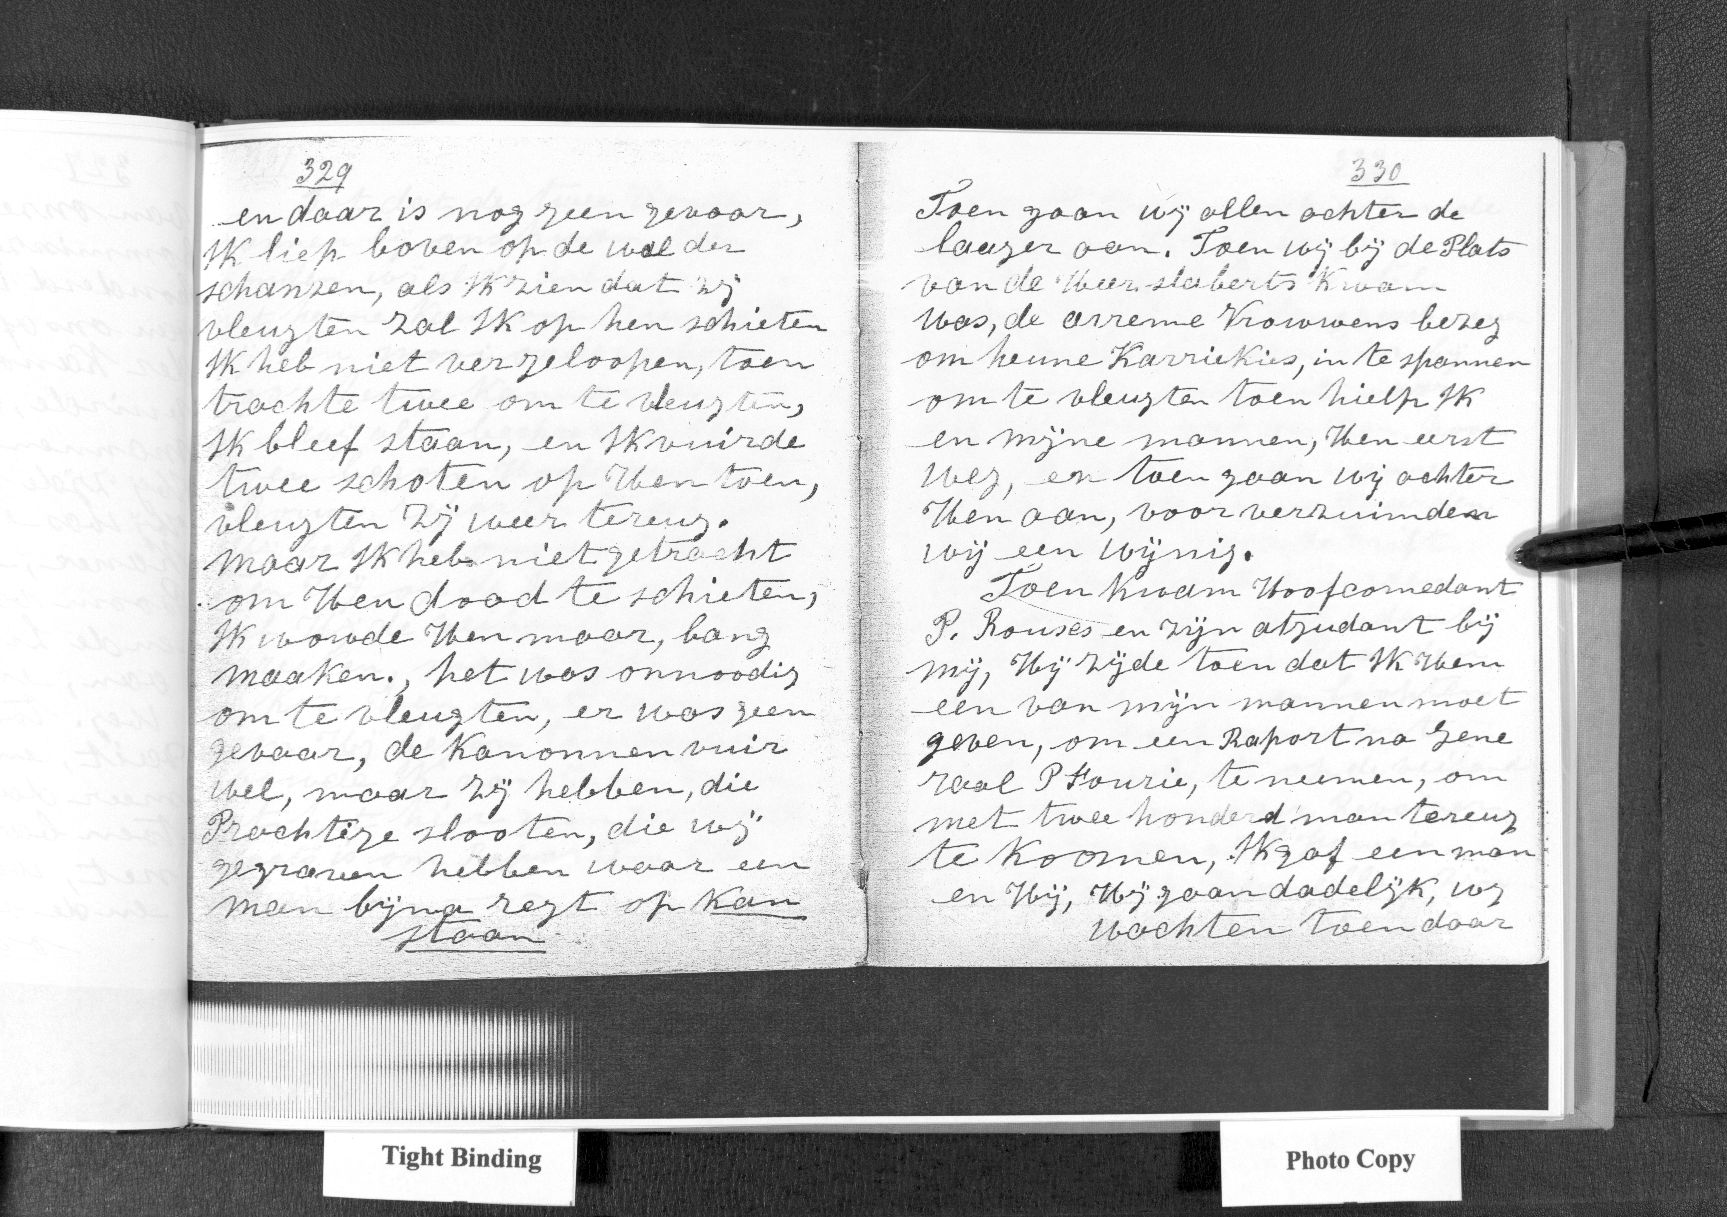 329
en daar is nog geen gevaar,
Ik liep boven op de wal der
schanzen, als Ik zien dat zij
vleugten zal Ik op hen schieten
Ik heb niet ver geloopen, toen
trachte twee om te vleugten,
Ik bleef staan, en Ik vuirde
twee schoten op Hen toen,
vleugten Zij weer tereug.
maar Ik heb niet getracht
om Hen dood te schieten,
Ik wowde Hen maar, bang
maaken., het was onnoodig
om te vleugten, er was geen
gevaar, de Kanonnen vuir
wel, maar zij hebben, die
Prachtige slooten, die wij
gegraven hebben waar een
man bijna regt op kan
staan
330
Toen gaan wij allen achter de
laager aan. Toen wij bij de Plats
van de Heer slaberts Kwam
was, de arreme Vrowwens bezeg
om heune Karriekies, in te spannen
om te vleugten toen hielp Ik
en mijne mannen, Hen eerst
weg, en toen gaan wij achter
Hen aan, voor verzuimden
wij een wijnig.
Toen kwam Hoofcomedant
P. Rouses en zijn atjudant bij
mij, Hij zijde toen dat Ik Hem
een van mijn mannen moet
geven, om een Raport na Gene
raal P Fourie, te neemen, om
met twee honderd man tereug
te Koomen, Ik gaf een man
en Hij, Hij gaan dadelijk, wij
wachten toen daar
Tight Binding
Photo Copy